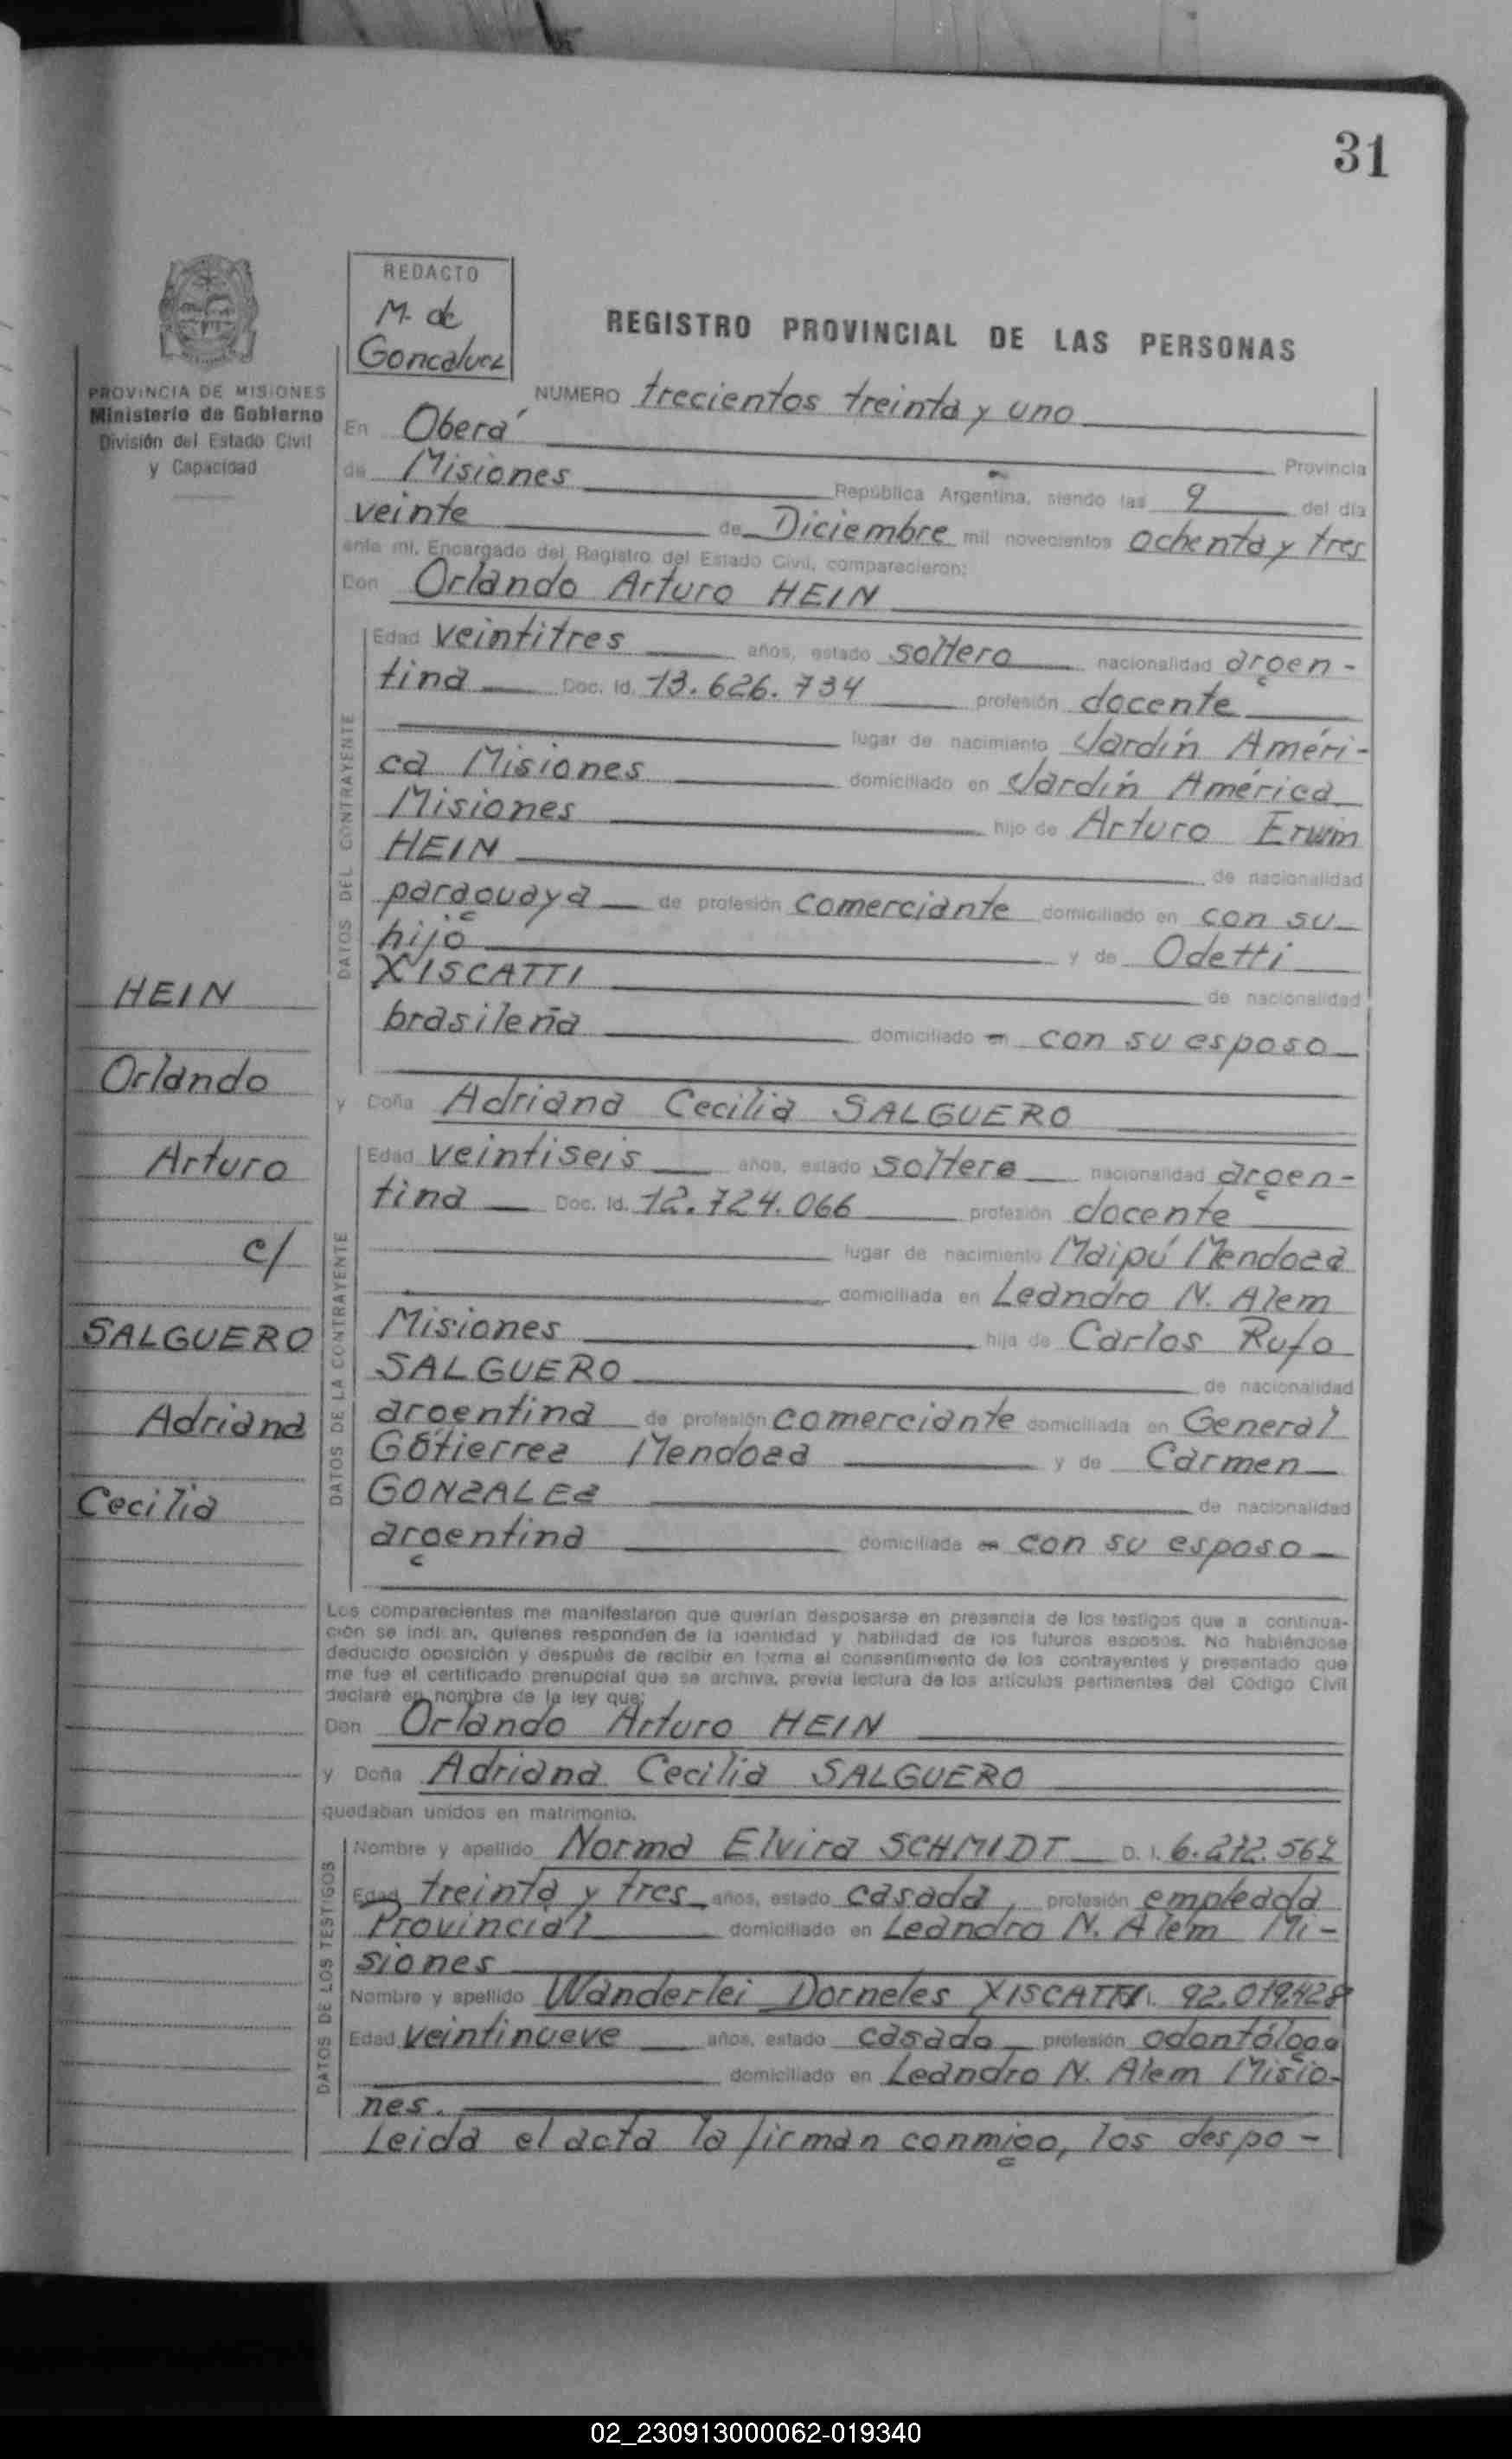 31
REDACTO
M. de
Goncalvez
REGISTRO PROVINCIAL DE LAS PERSONAS
PROVINCIA DE MISIONES
Ministerio de Gobierno
División del Estado Civil
y Capacidad
NUMERO trecientos treinta y uno
En Oberá Provincia
de Misiones República Argentina, siendo las 9 del día
veinte de Diciembre mil novecientos ochenta y tres
ante mi, Encargado del Registro del Estado Civil, comparecieron:
Don Orlando Arturo HEIN
DATOS DEL CONTRAYENTE
Edad veintitres años, estado soltero nacionalidad argen-
tina Doc. Id. 13.626.734 profesión docente
lugar de nacimiento Jardín Améri-
ca Misiones domiciliado en Jardín América
Misiones hijo de Arturo Erwin
HEIN de nacionalidad
paraguaya de profesión comerciante domiciliado en con su
hijo y de Odetti
XISCATTI de nacionalidad
brasileña domiciliado en con su esposo
y Doña Adriana Cecilia SALGUERO
DATOS DE LA CONTRAYENTE
Edad veintiseis años, estado soltera nacionalidad argen-
tina Doc. Id. 12.724.066 profesión docente
lugar de nacimiento Maipú Mendoza
domiciliada en Leandro N. Alem
Misiones hija de Carlos Rufo
SALGUERO de nacionalidad
argentina de profesión comerciante domiciliada en General
Gutierrez Mendoza y de Carmen
GONZALEZ de nacionalidad
argentina domiciliada en con su esposo
HEIN
Orlando
Arturo
c/
SALGUERO
Adriana
Cecilia
Los comparecientes me manifestaron que querían desposarse en presencia de los testigos que a continua-
ción se indi an, quienes responden de la identidad y habilidad de los futuros esposos. No habiéndose
deducido oposición y después de recibir en forma el consentimiento de los contrayentes y presentado que
me fue el certificado prenupcial que se archiva, previa lectura de los artículos pertinentes del Código Civil
declaré en nombre de la ley que:
Don Orlando Arturo HEIN
y Doña Adriana Cecilia SALGUERO
quedaban unidos en matrimonio.
DATOS DE LOS TESTIGOS
Nombre y apellido Norma Elvira SCHMIDT D. I. 6.272.562
Edad treinta y tres años, estado casada, profesión empleada
Provincial domiciliado en Leandro N. Alem Mi-
siones
Nombre y apellido Wanderlei Dorneles XISCATTI 92.019.428
Edad veintinueve años, estado casado profesión odontólogo
domiciliado en Leandro N. Alem Misio-
nes.
Leida el acta la firman conmigo, los despo-
02_230913000062-019340